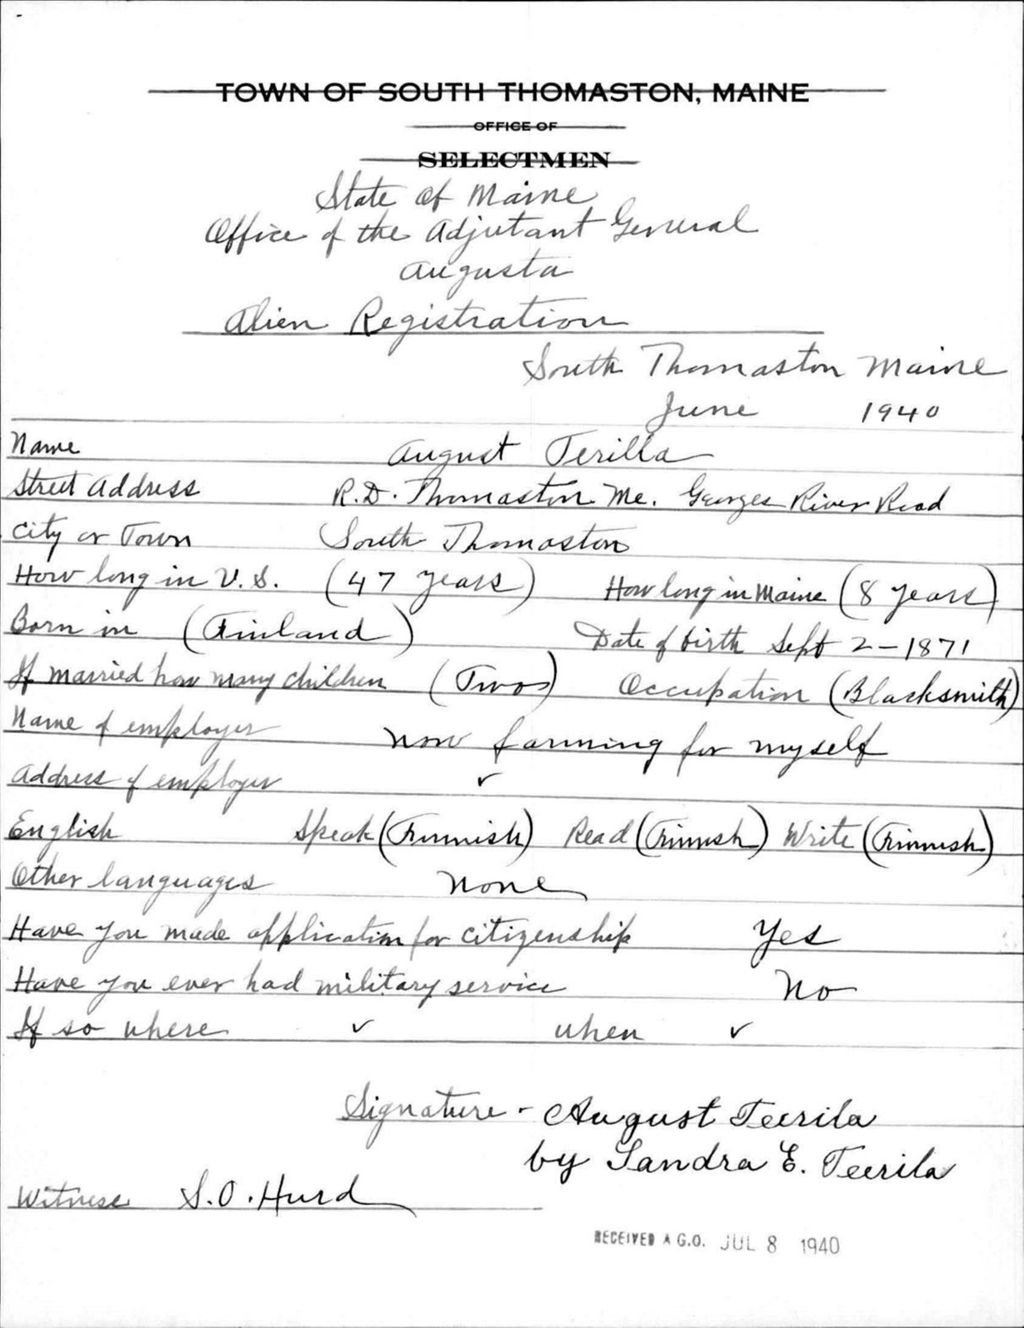 TOWN OF SOUTH THOMASTON, MAINE
OFFICE OF
SELECTMEN
State of Maine
Office of the Adjutant General
Augusta
Alien Registration
South Thomaston Maine
June 1940
Name August Terilla
Street Address R.D. Thomaston Me. Georges River Road
City or Town South Thomaston
How long in U.S. (47 years) How long in Maine (8 years)
Born in (Finland) Date of birth Sept 2-1871
If married how many children (Two) Occupation (Blacksmith)
Name of employer now farming for myself
Address of employer ✓
English Speak (Finnish) Read (Finnish) Write (Finnish)
Other languages none
Have you made application for citizenship Yes
Have you ever had military service No
If so where ✓ when ✓
Signature - August Teerila
by Sandra E. Teerila
Witness S.O. Hurd
RECEIVED A.G.O. JUL 8 1940